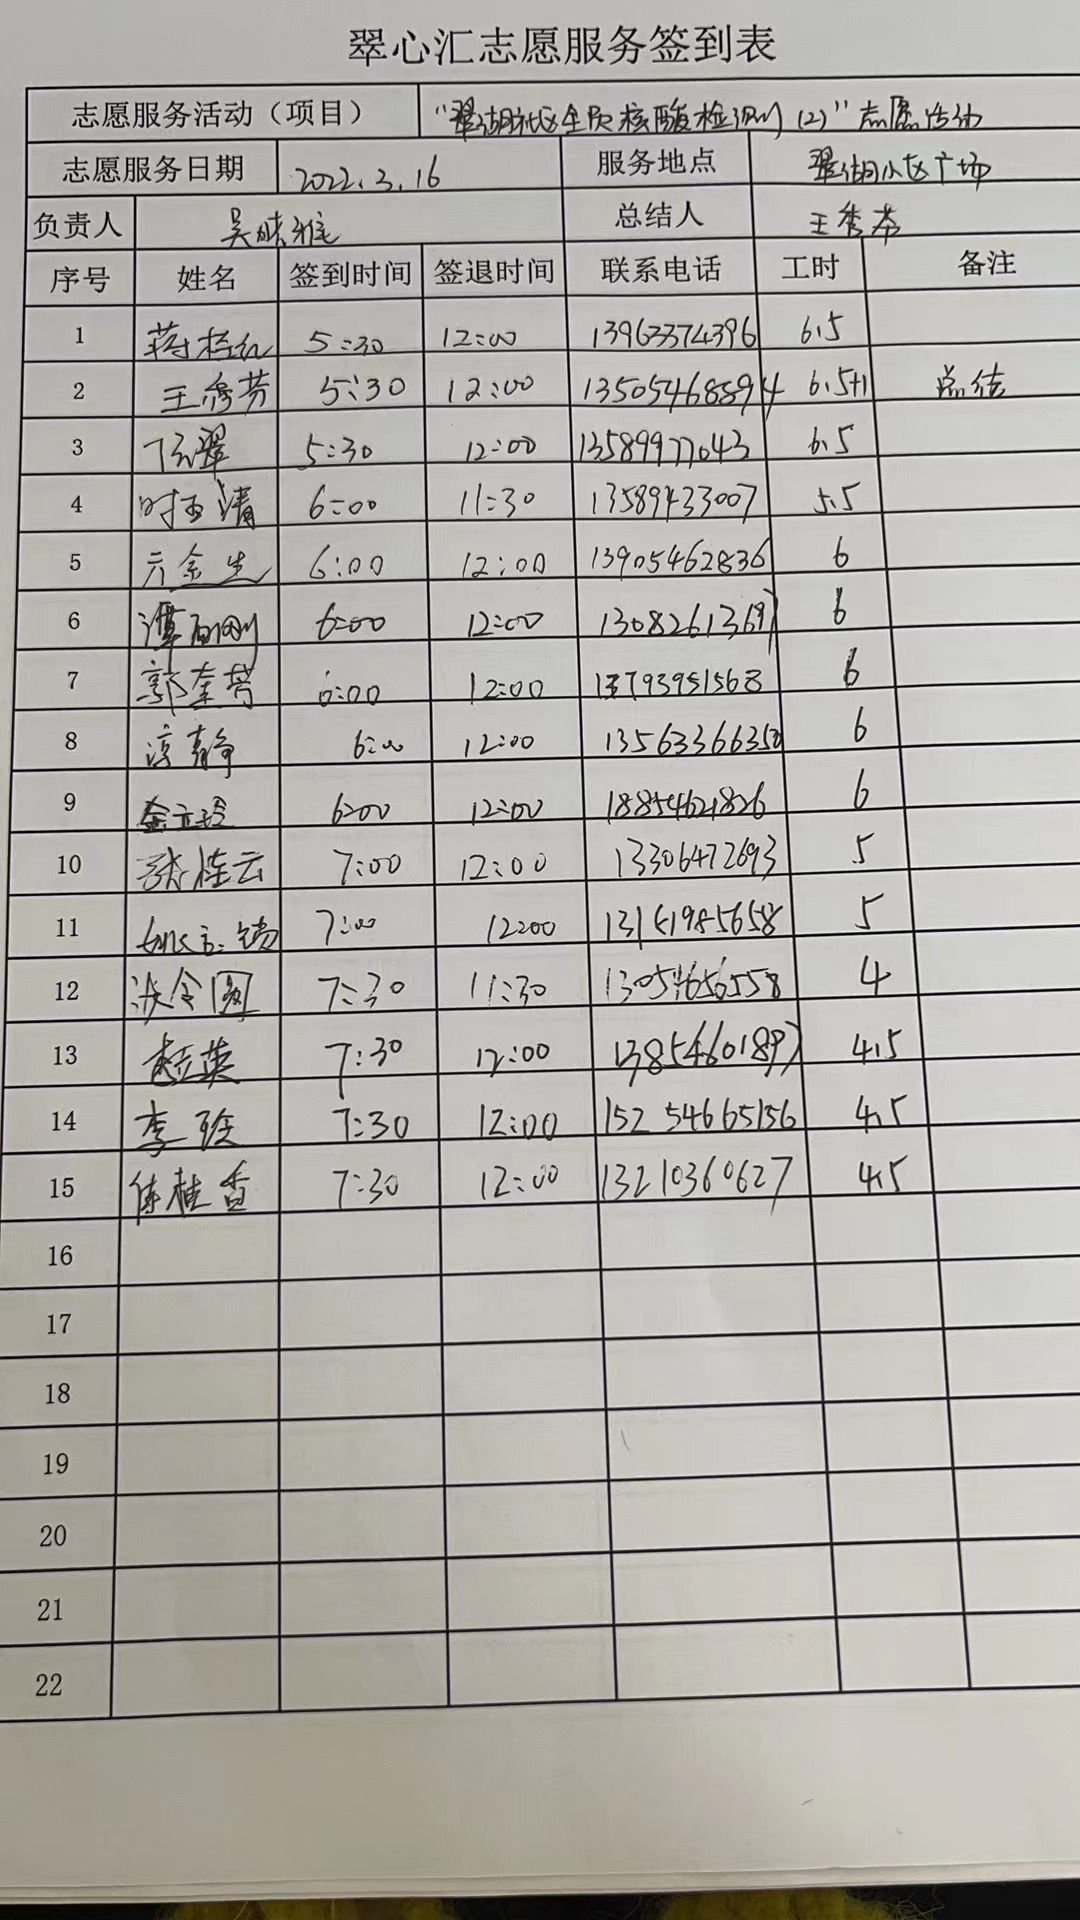 翠心汇志愿服务签到表
志愿服务活动（项目） “翠湖社区全员核酸检测(2)”志愿活动
志愿服务日期 2022.3.16 服务地点 翠湖小区广场
负责人 吴 总结人 王秀芳
序号 姓名 签到时间 签退时间 联系电话 工时 备注
1 5:30 12:00 13963374396 6.5
2 王秀芳 5:30 12:00 13505468594 6.5+1 总结
3 丁云翠 5:30 12:00 13589977043 6.5
4 时玉清 6:00 11:30 13589433007 5.5
5 6:00 12:00 13905462836 6
6 谭 6:00 12:00 13082613697 6
7 郭奎芳 6:00 12:00 13793951568 6
8 静 6:00 12:00 13563366350 6
9 6:00 12:00 18854621826 6
10 张桂云 7:00 12:00 13306472693 5
11 7:00 12:00 5
12 7:30 11:30 13054656558 4
13 英 7:30 12:00 13854601897 4.5
14 李 7:30 12:00 15254665156 4.5
15 桂香 7:30 12:00 13210360627 4.5
16
17
18
19
20
21
22